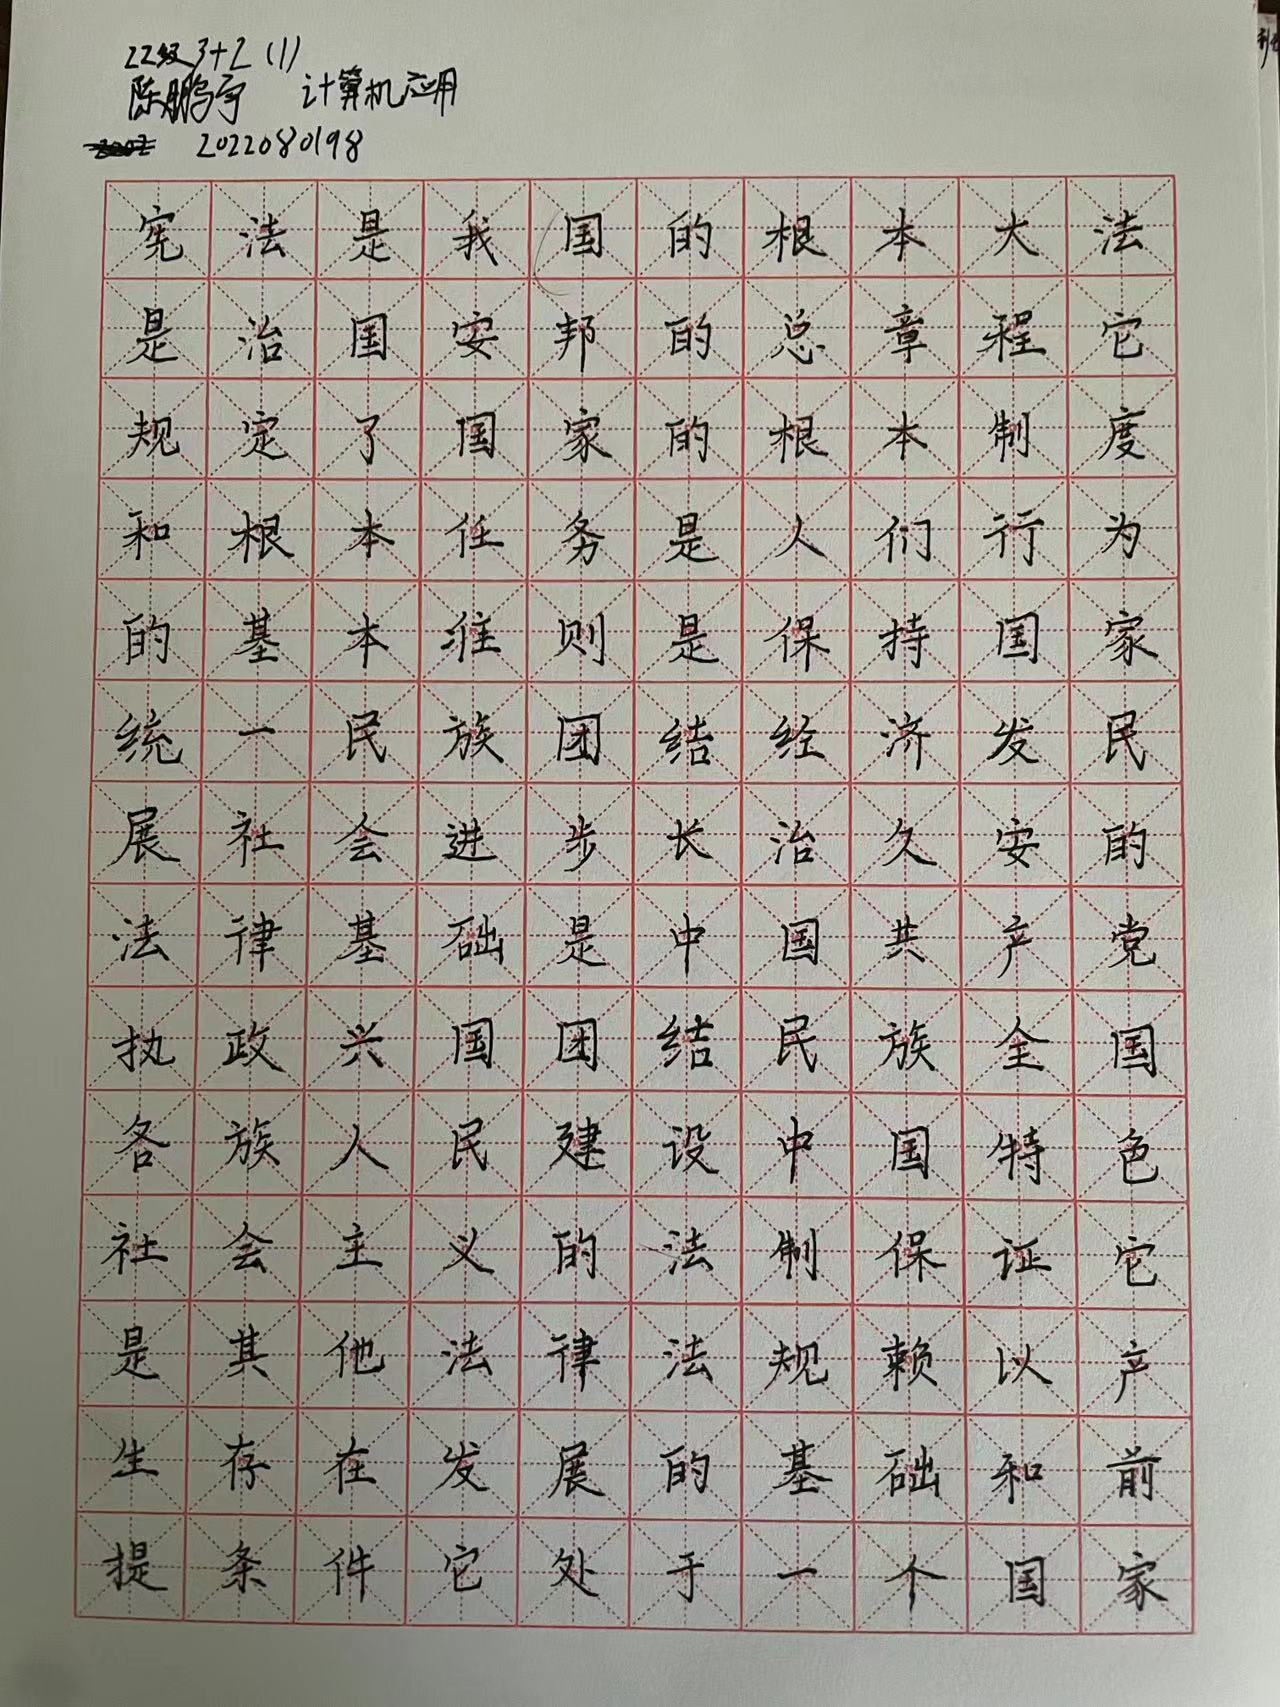 22级3+2(1)
陈鹏宇 计算机应用
2022080198
宪法是我国的根本大法
是治国安邦的总章程它
规定了国家的根本制度
和根本任务是人们行为
的基本准则是保持国家
统一民族团结经济发民
展社会进步长治久安的
法律基础是中国共产党
执政兴国团结民族全国
各族人民建设中国特色
社会主义的法制保证它
是其他法律法规赖以产
生存在发展的基础和前
提条件它处于一个国家